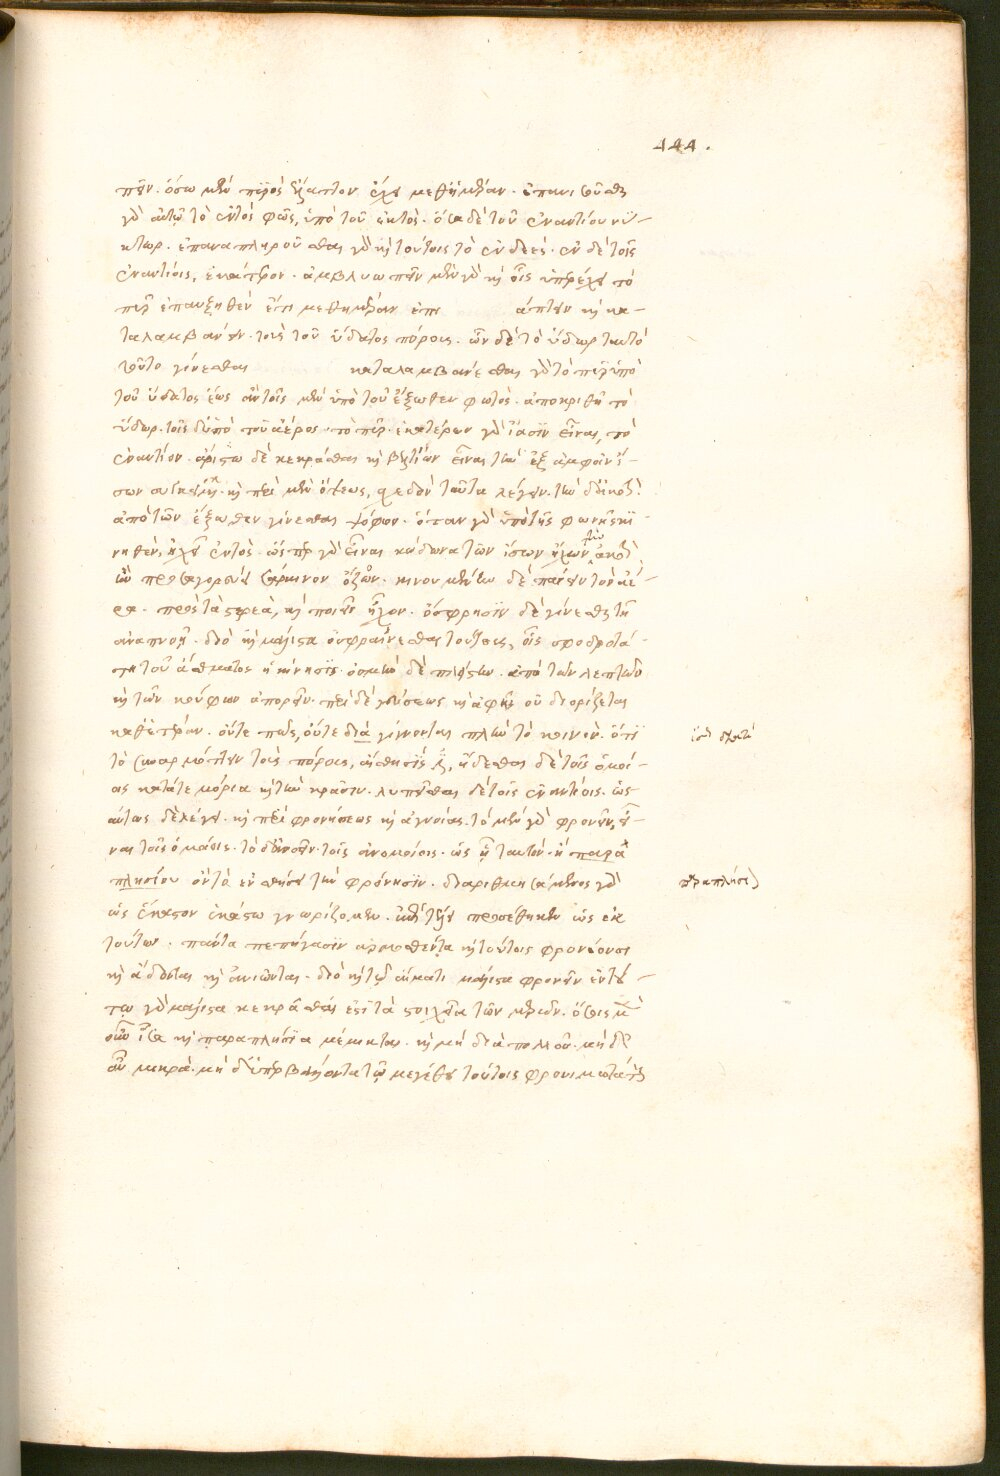 444.
πεῖν. ὅσω μὲν πυρὸς ἔλαττον ἔχει μεθημέραν. ἐπανισοῦσθαι
γὰρ αὐτῷ τὸ ἐντὸς φῶς, ὑπὸ τοῦ ἐκτὸς. ὅσα δὲ τοῦ ἐναντίου νύ-
κτωρ. ἐπαναπληροῦσθαι γὰρ καὶ τούτοις τὸ ἐνδεές. ἐν δὲ τοῖς
ἐναντίοις, ἑκάτερον. ἀμβλυωπεῖν μὲν γὰρ καὶ οἷς ὑπερέχει τὸ
πῦρ ἐπαυξηθὲν ἔτι μεθημέραν ἐπι άπτειν καὶ κα-
ταλαμβάνειν. τοὺς τοῦ ὕδατος πόρους. ὧν δὲ τὸ ὕδωρ ταυτὸ
τοῦτο γίνεσθαι καταλαμβάνεσθαι γὰρ τὸ πῦρ ὑπὸ
τοῦ ὕδατος ἕως ἂν τοῖς μὲν ὑπὸ τοῦ ἔξωθεν φωτὸς. ἀποκριθῇ τὸ
ὕδωρ. τοῖς δ' ὑπὸ τοῦ ἀέρος. τὸ πῦρ. ἑκατέρων γὰρ ἴασϊν εἶναι, τὸ
ἐναντίον. ἄριστα δὲ κεκράσθαι καὶ βελτίστην εἶναι τὴν ἐξ ἀμφοῖν ἴ-
σων συγκειμένην. καὶ περὶ μὲν ὄψεως, σχεδὸν ταῦτα λέγει. τὴν δ' ἀκοὴν
ἀπὸ τῶν ἔξωθεν γίνεσθαι ψόφων. ὅταν γὰρ ὑπὸ τῆς φωνῆς κϊ-
νηθὲν, ἠχεῖ ἐντὸς. ὥσπερ γὰρ εἶναι κώδωνα τῶν ἴσων ἤχων τὴν ἀκοὴν
ἣν προσαγορεύει σάρκινον ὄζον. κινουμένην δὲ παίειν τὸν ἀέ-
ρα. πρὸς τὰ στερεὰ, καὶ ποιεῖν ἦχον. ὄσφρησϊν δὲ γίνεσθαι τῇ
ἀναπνοῇ. διὸ καὶ μάλιστα ὀσφραίνεσθαι τούτους, οἷς σφοδροτά-
τη τοῦ ἄσθματος ἡ κίνησϊς. ὀσμὴν δὲ πλείστην. ἀπὸ τῶν λεπτῶν
καὶ τῶν κούφων ἀπορεῖν. περὶ δὲ γεύσεως καὶ ἀφῆς οὐ διορίζεται
καθ' ἑτέραν. οὔτε πῶς, οὔτε διὰ γίννονται πλὴν τὸ κοινὸν. ὅτϊ
τὸ ἐναρμόττειν τοῖς πόροις, αἴσθησϊς ἐστιν, ἥδεσθαι δὲ τοῖς ὁμοί-
οις κατά τε μόρια καὶ τὴν κρᾶσιν. λυπεῖσθαι δὲ τοῖς ἐναντίοις. ὡς
αύτως δὲ λέγει. καὶ περὶ φρονήσεως καὶ ἀγνοίας. τὸ μὲν γὰρ φρονεῖν, εἶ-
ναι τοῖς ὁμοίοις. τὸ δ' ἀγνοεῖν. τοῖς ἀνομοίοις. ὡς ἢ ταυτὸν. ἢ παρα
πλησίον ὄντα ἐν αἰσθήσει τὴν φρόνησϊν. διαριθμησάμενος γὰρ
ὡς ἕκαστον ἑκάστω γνωρίζομεν. ἐπὶ τέλει προσέθηκεν ὡς ἐκ
τούτων. πάντα πεπήγασϊν ἁρμοσθέντα καὶ τούτοις φρονέουσι
καὶ ἅδονται καὶ ἀνιῶνται. διὸ καὶ τῷ αἵματι μάλιστα φρονεῖν ἐν τού-
τω γὰρ μάλιστα κεκρᾶσθαί ἐστὶ τὰ στοιχεῖα τῶν μερῶν. ὅσοις μὲν
οὖν ἴσα καὶ παραπλήσϊα μέμικται. καὶ μὴ διὰ πολλοῦ. μὴ δ'
αὖ μικρὰ. μὴ δ' ὑπερβάλλοντα τῷ μεγέθει τούτοις φρονιμωτάτους
παραπλήσι